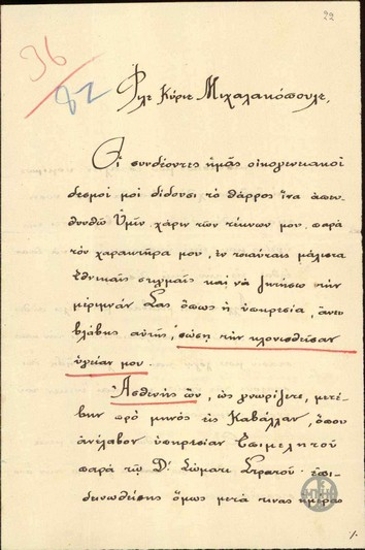 22
36
82
Φίλε Κύριε Μιχαλακόπουλε,
Οἱ συνδέοντες ἡμᾶς οἰκογενειακοὶ
δεσμοί μοι δίδουσι τὸ θάρρος ἵνα ἀπευ-
θυνθῶ Ὑμῖν χάριν τῶν τέκνων μου παρὰ
τὸν χαρακτῆρα μου, ἐν τοιαύταις μάλιστα
ἐθνικαῖς στιγμαῖς καὶ νὰ ζητήσω τὴν
μέριμνάν Σας ὅπως ἡ ὑπηρεσία, ἄνευ
βλάβης αὐτῆς, σώσῃ τὴν κλονισθεῖσαν
ὑγείαν μου.
Ἀσθενὴς ὢν, ὡς γνωρίζετε, μετέ-
βην πρὸ μηνὸς εἰς Καβάλλαν, ὅπου
ἀνέλαβον ὑπηρεσίαν Ἐπιμελητοῦ
παρὰ τῷ Δ' Σώματι Στρατοῦ. Ἐπι-
δεινωθείσης ὅμως μετά τινας ἡμέρας